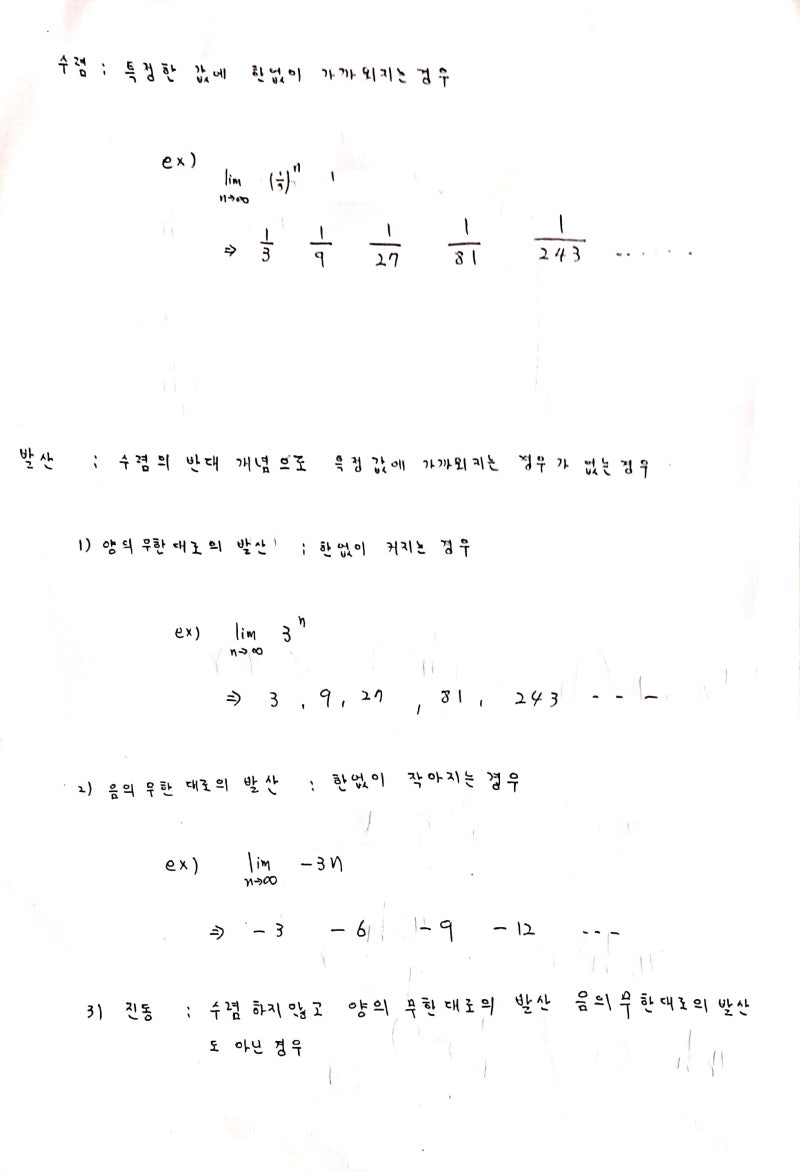 수렴 : 특정한 값에 한없이 가까워지는 경우
ex) lim n→∞ (1/3)^n
⇒ 1/3 1/9 1/27 1/81 1/243 ......
발산 : 수렴의 반대 개념으로 특정 값에 가까워지는 경우가 없는 경우
1) 양의 무한대로의 발산 : 한없이 커지는 경우
ex) lim n→∞ 3^n
⇒ 3 , 9 , 27 , 81 , 243 - - -
2) 음의 무한대로의 발산 : 한없이 작아지는 경우
ex) lim n→∞ -3n
⇒ -3 -6 -9 -12 ---
3) 진동 : 수렴 하지않고 양의 무한대로의 발산 음의 무한대로의 발산
도 아닌 경우